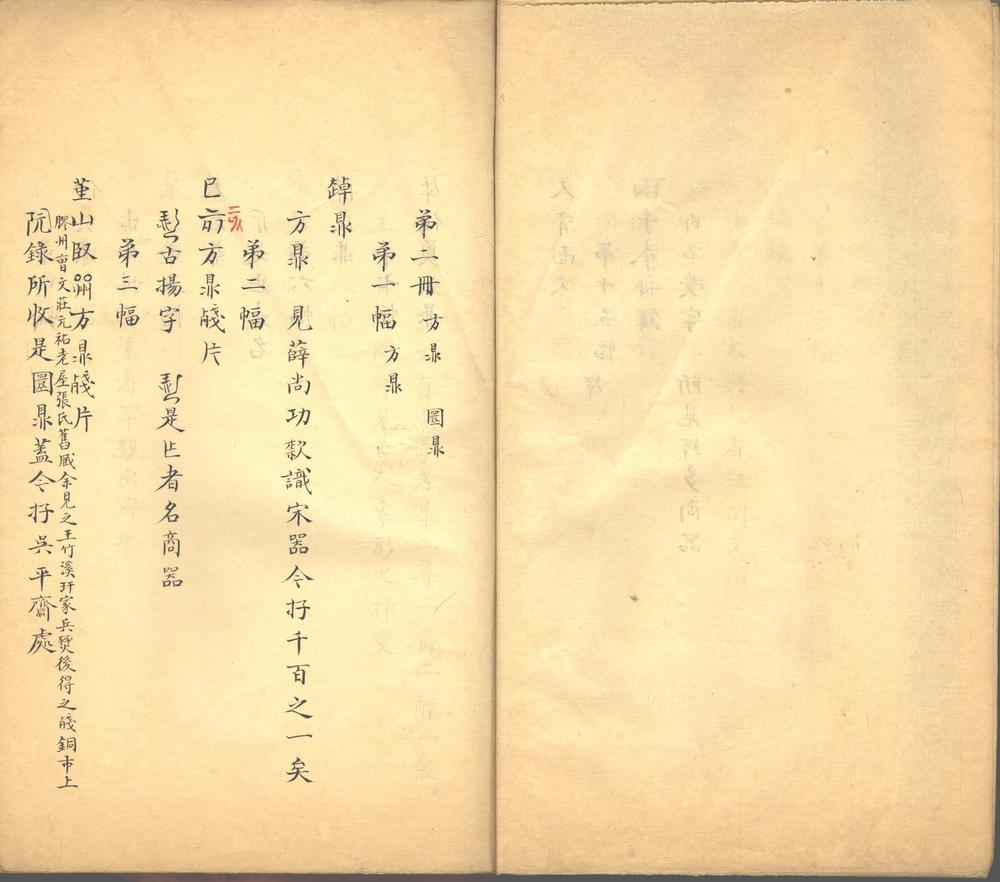 弟二冊 方鼎 圜鼎
弟一幅 方鼎
鼎
方鼎 見薛尚功款識宋器今存千百之一矣
弟二幅
巳
方鼎殘片
古揚字 是作者名商器
弟三幅
堇山
方鼎殘片
膠州曹文莊元祐老屋張氏舊藏余見之王竹溪玕家兵燹後得之殘銅市上
阮錄所收是圜鼎蓋今存吳平齋處